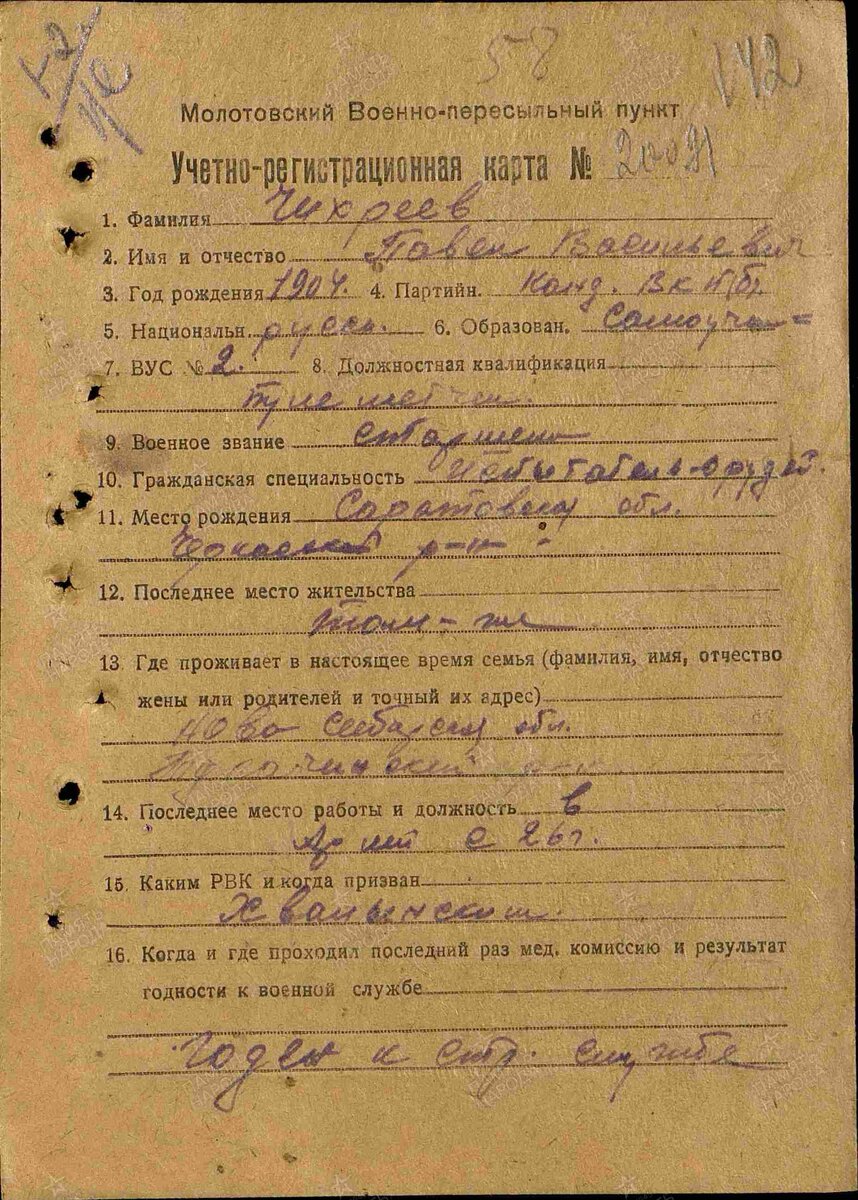 58
142
Молотовский Военно-пересыльный пункт
Учетно-регистрационная карта №
1. Фамилия Чихреев
2. Имя и отчество Павел Васильевич
3. Год рождения 1904. 4. Партийн. Канд. ВКП(б)
5. Национальн. русск. 6. Образован. Самоучка
7. ВУС № 2. 8. Должностная квалификация
пулеметчик.
9. Военное звание старшина
10. Гражданская специальность
11. Место рождения Саратовская обл.
р-н
12. Последнее место жительства
там-же
13. Где проживает в настоящее время семья (фамилия, имя, отчество
жены или родителей и точный их адрес)
Ново Сибирская обл.
14. Последнее место работы и должность в
Армии с 26 г.
15. Каким РВК и когда призван
Хвалынским.
16. Когда и где проходил последний раз мед. комиссию и результат
годности к военной службе
Годен к стр. службе